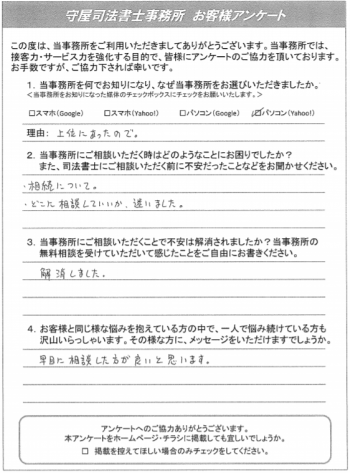 守屋司法書士事務所 お客様アンケート
この度は、当事務所をご利用いただきましてありがとうございます。当事務所では、
接客力・サービス力を強化する目的で、皆様にアンケートのご協力を頂いております。
お手数ですが、ご協力下されば幸いです。
1. 当事務所を何でお知りになり、なぜ当事務所をお選びいただきましたか。
<当事務所をお知りになった媒体のチェックボックスにチェックをお願いいたします。>
□スマホ(Google) □スマホ(Yahoo!) □パソコン(Google) ☑パソコン(Yahoo!)
理由: 上位にあったので。
2. 当事務所にご相談いただく時はどのようなことにお困りでしたか?
また、司法書士にご相談いただく前に不安だったことなどをお聞かせください。
・相続について。
・どこに相談していいか、迷いました。
3. 当事務所にご相談いただくことで不安は解消されましたか?当事務所の
無料相談を受けていただいて感じたことをご自由にお書きください。
解消しました。
4. お客様と同じ様な悩みを抱えている方の中で、一人で悩み続けている方も
沢山いらっしゃいます。その様な方に、メッセージをいただけますでしょうか。
早目に相談した方が良いと思います。
アンケートへのご協力ありがとうございます。
本アンケートをホームページ・チラシに掲載しても宜しいでしょうか。
□ 掲載を控えてほしい場合のみチェックをしてください。